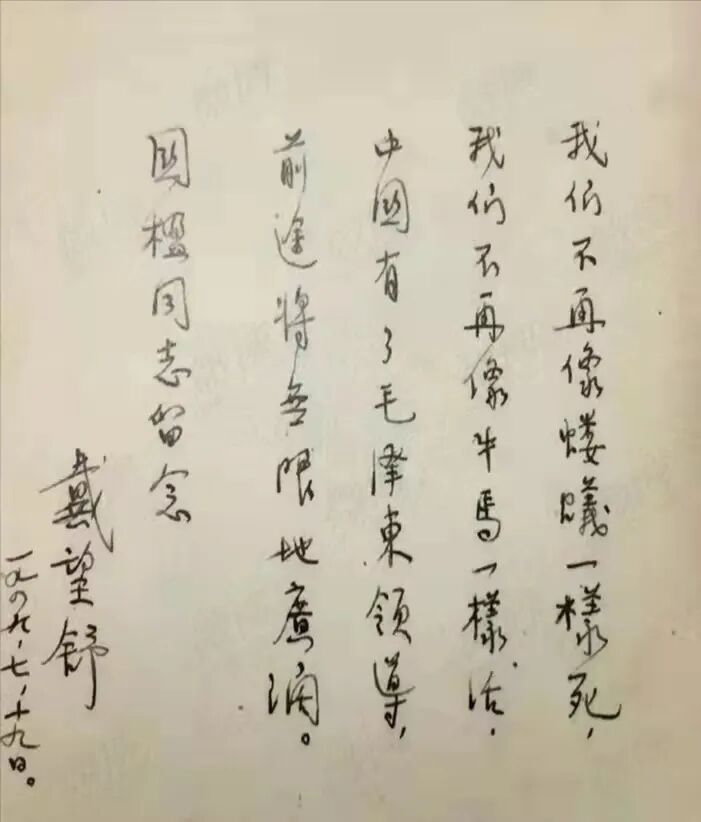 我们不再像蝼蟻一樣死，
我们不再像牛馬一樣活，
中國有了毛泽東領導，
前途将無限地廣濶。
國楹同志留念
戴望舒
一九四九、七、十九日。